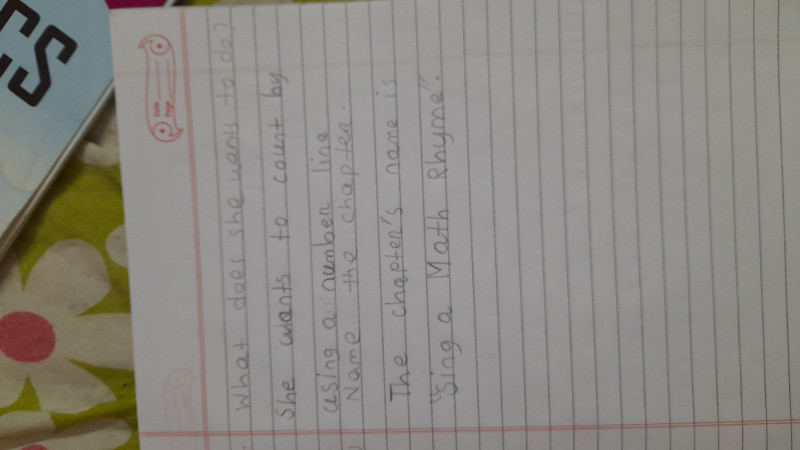 CS
Date
Page
What does she wants to do?
She wants to count by
using a number line
Name the chapter.
The chapter's name is
"Sing a Math Rhyme".